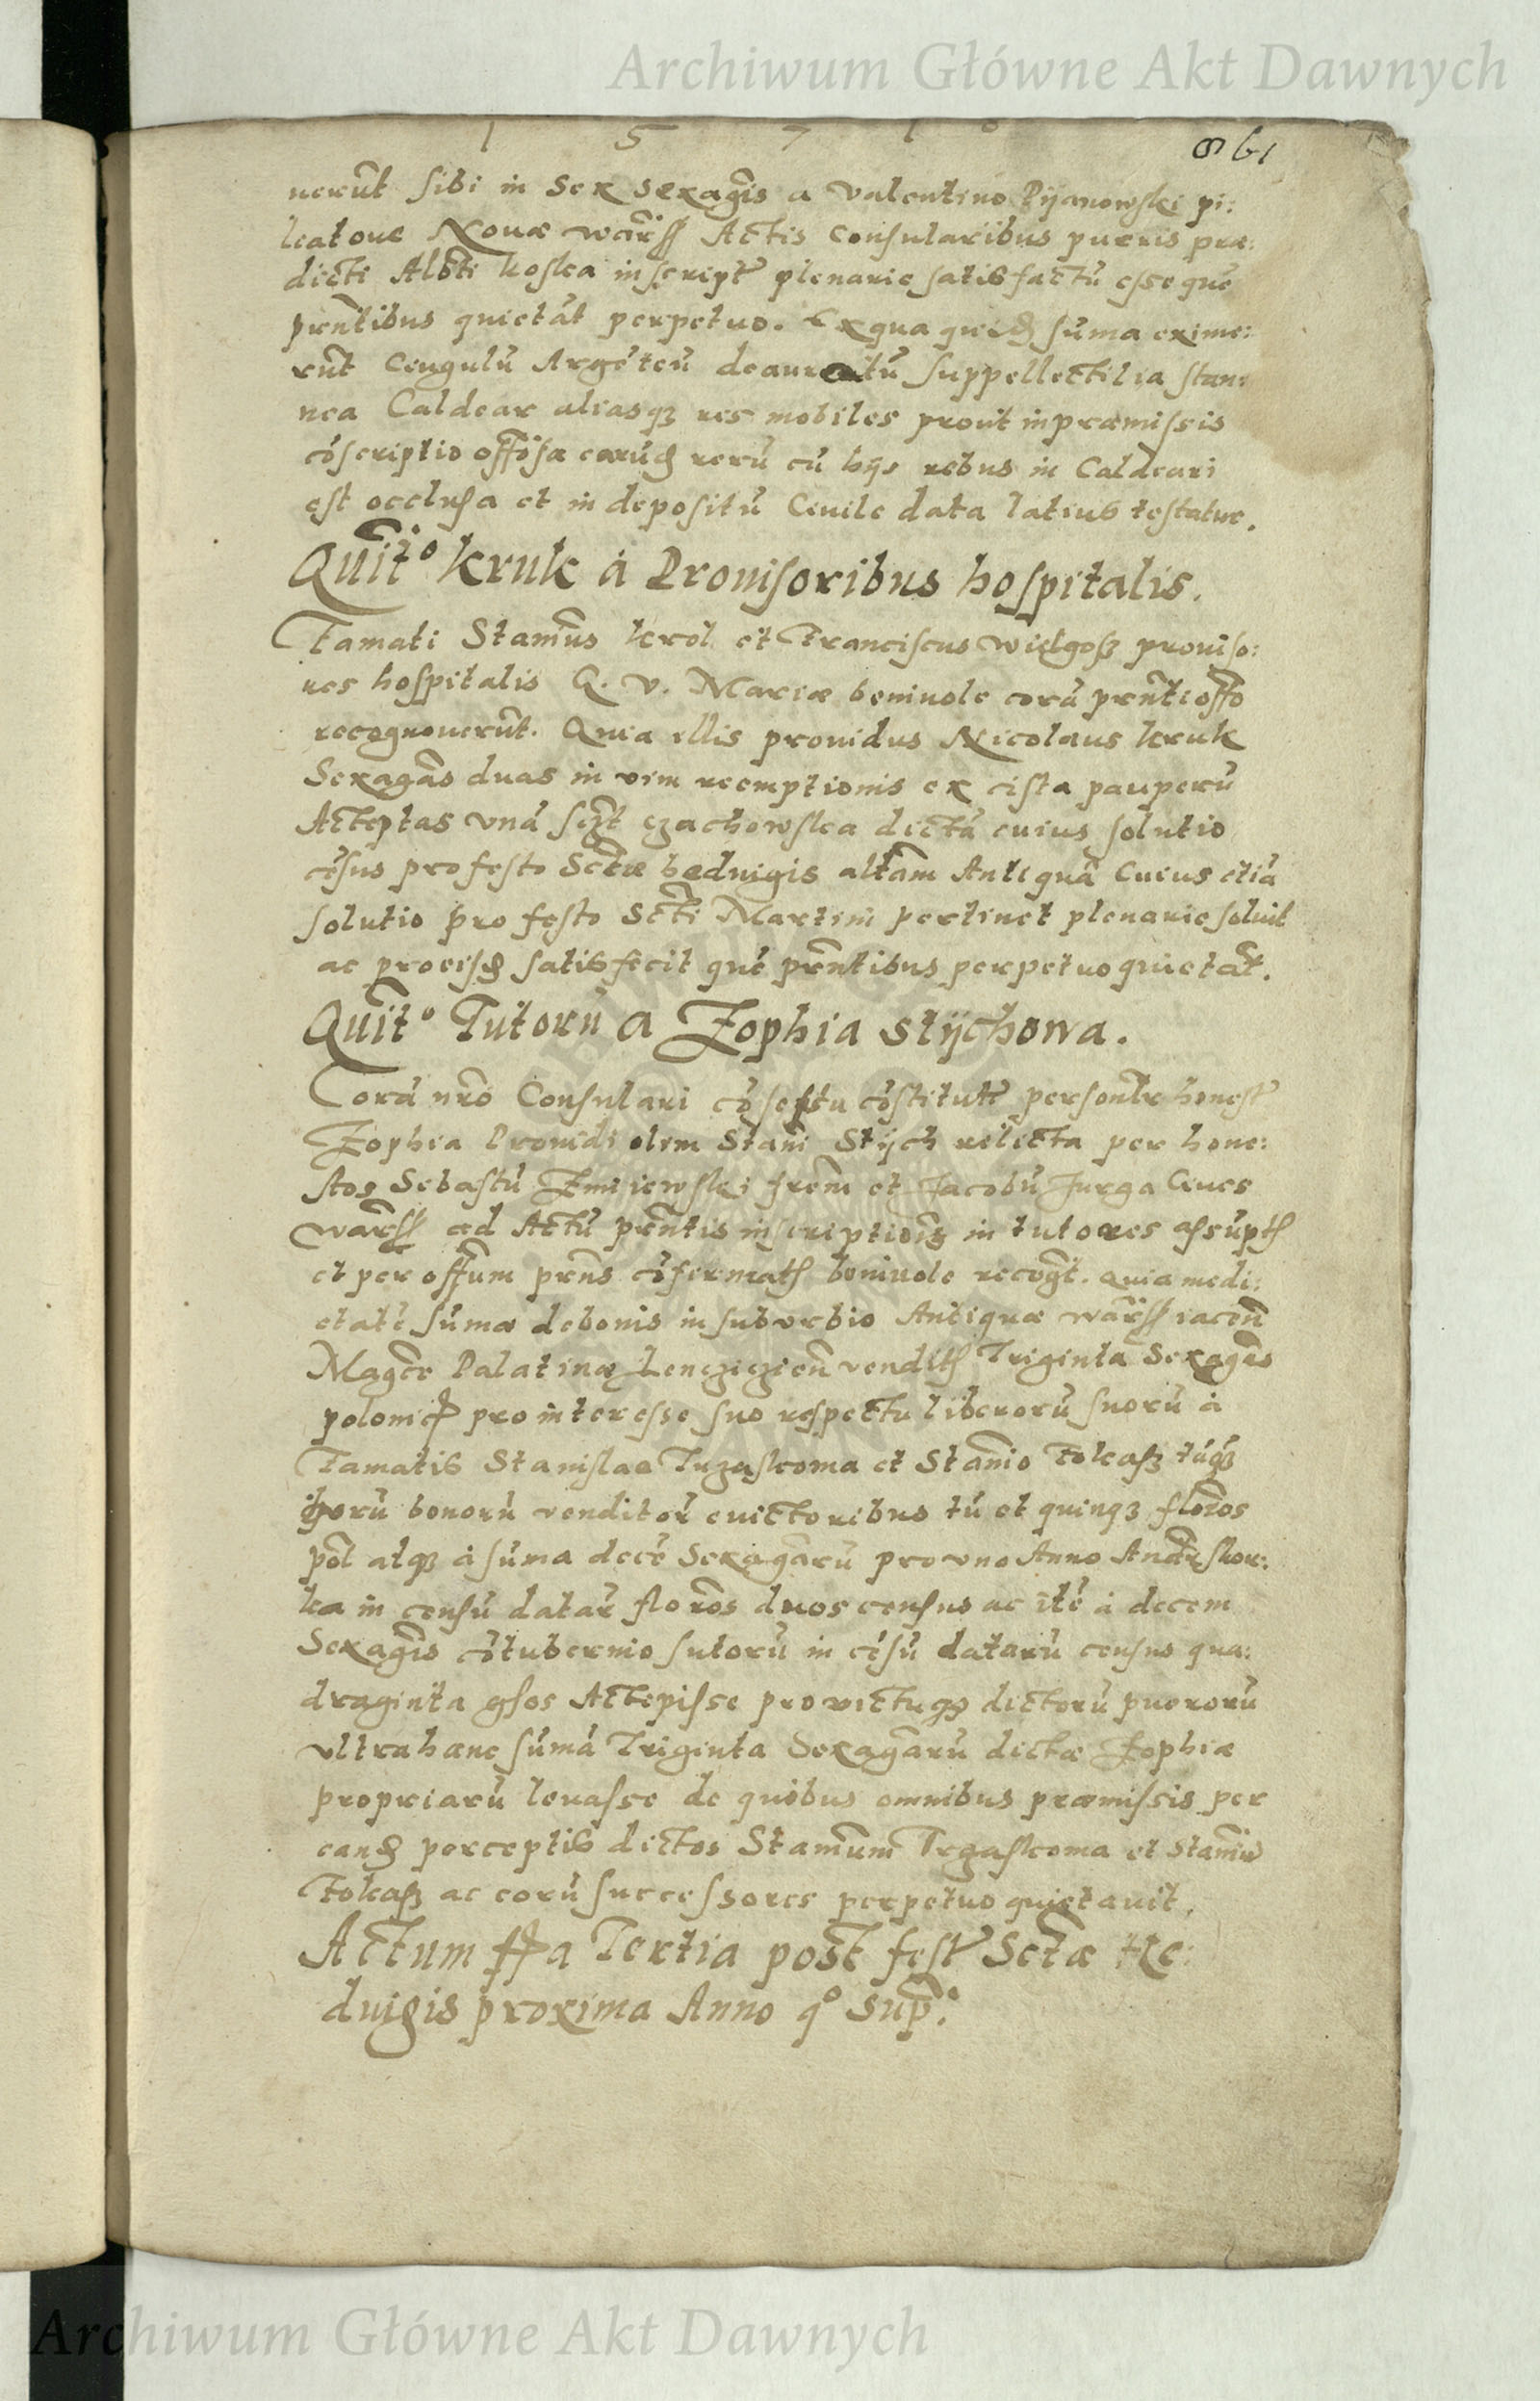 Archiwum Główne Akt Dawnych
1 5 7 1
861
nerūt sibi in Sex Sexagīs a Valentino Pijanowski pi:
leatore Novæ warss Actis Consularibus pueris præ:
dicti Albti koska inscript plenarie satisfactū esse que
prentibus quietāt perpetuo. Ex qua quid sūma exime:
rūt Cingulū Argēteū deauratū suppellectilia stan:
nea Caldear aliasqꝫ res mobiles prout in præmissis
cōscriptio offosa earūd rerū cū hijs rebus in Caldeari
est occlusa et in depositū Civile data latius testatur.
Quit° kruk à Provisoribus hospitalis.
Famati Stanūs krol et Franciscus Wielgosz proviso:
res hospitalis G. V. Mariæ benivole corā prnti offo
recognoverūt. Quia illis providus Nicolaus kruk
Sexagās duas in vim reemptionis ex cista pauperū
Acceptas unā sczt czachowska dictā cuius solutio
cēsus pro festo Sctæ heduigis altam Antiquā Cuius etiā
solutio pro festo Scti Martini pertinet plenarie solvit
ac pro eisd satisfecit que prntibus perpetuo quietāt.
Quit° Tutorū a Zophia Stijchowa.
Corā nro Consulari cōsessu cōstitut personlr honest
Zophia Providi olim Stani Stijch relicta per hone:
stos Sebastū Zmijewski frem et Jacobū Jurga Cives
warss ad Actū prntis inscriptionis in tutores assūpt
et per offum prns cōfirmat benivole recogt. Quia medi:
etatē sūmæ de bonis in suburbio Antiquæ warss iacen
Magcæ Palatinæ Lencziczien vendit Triginta Sexagās
polonic pro interesse suo respectu liberorū suorū à
Famatis Stanislao Tuzaskoma et Stanio Tokasz tāqꝫ
ipsorū bonorū venditor evictoribus tū et quinqꝫ floros
pol atqꝫ à sūma decē Sexagarū pro uno Anno Andr skor:
ka in censū datar floros duos census ac itē à decem
Sexagīs cōtubernio sutorū in cēsū datarū census qua:
draginta gsos Accepisse pro victuqꝫ dictorū puerorū
ultra hanc sūmā Triginta Sexagarū dictæ Zophiæ
propriarū levasse de quibus omnibus præmissis per
eand perceptis dictos Stanium Trzaskoma et Staniū
Tokasz ac eorū successores perpetuo quietavit.
Actum ffa Tertia post fest Sctæ He:
duigis proxima Anno q° sup.
Archiwum Główne Akt Dawnych